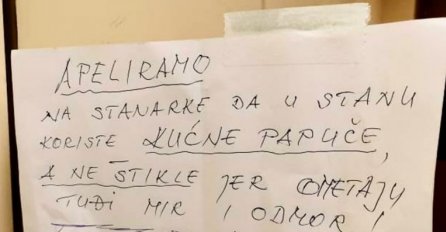 APELIRAMO
NA STANARKE DA U STANU
KORISTE KUĆNE PAPUČE,
A NE ŠTIKLE JER OMETAJU
TUĐI MIR I ODMOR!